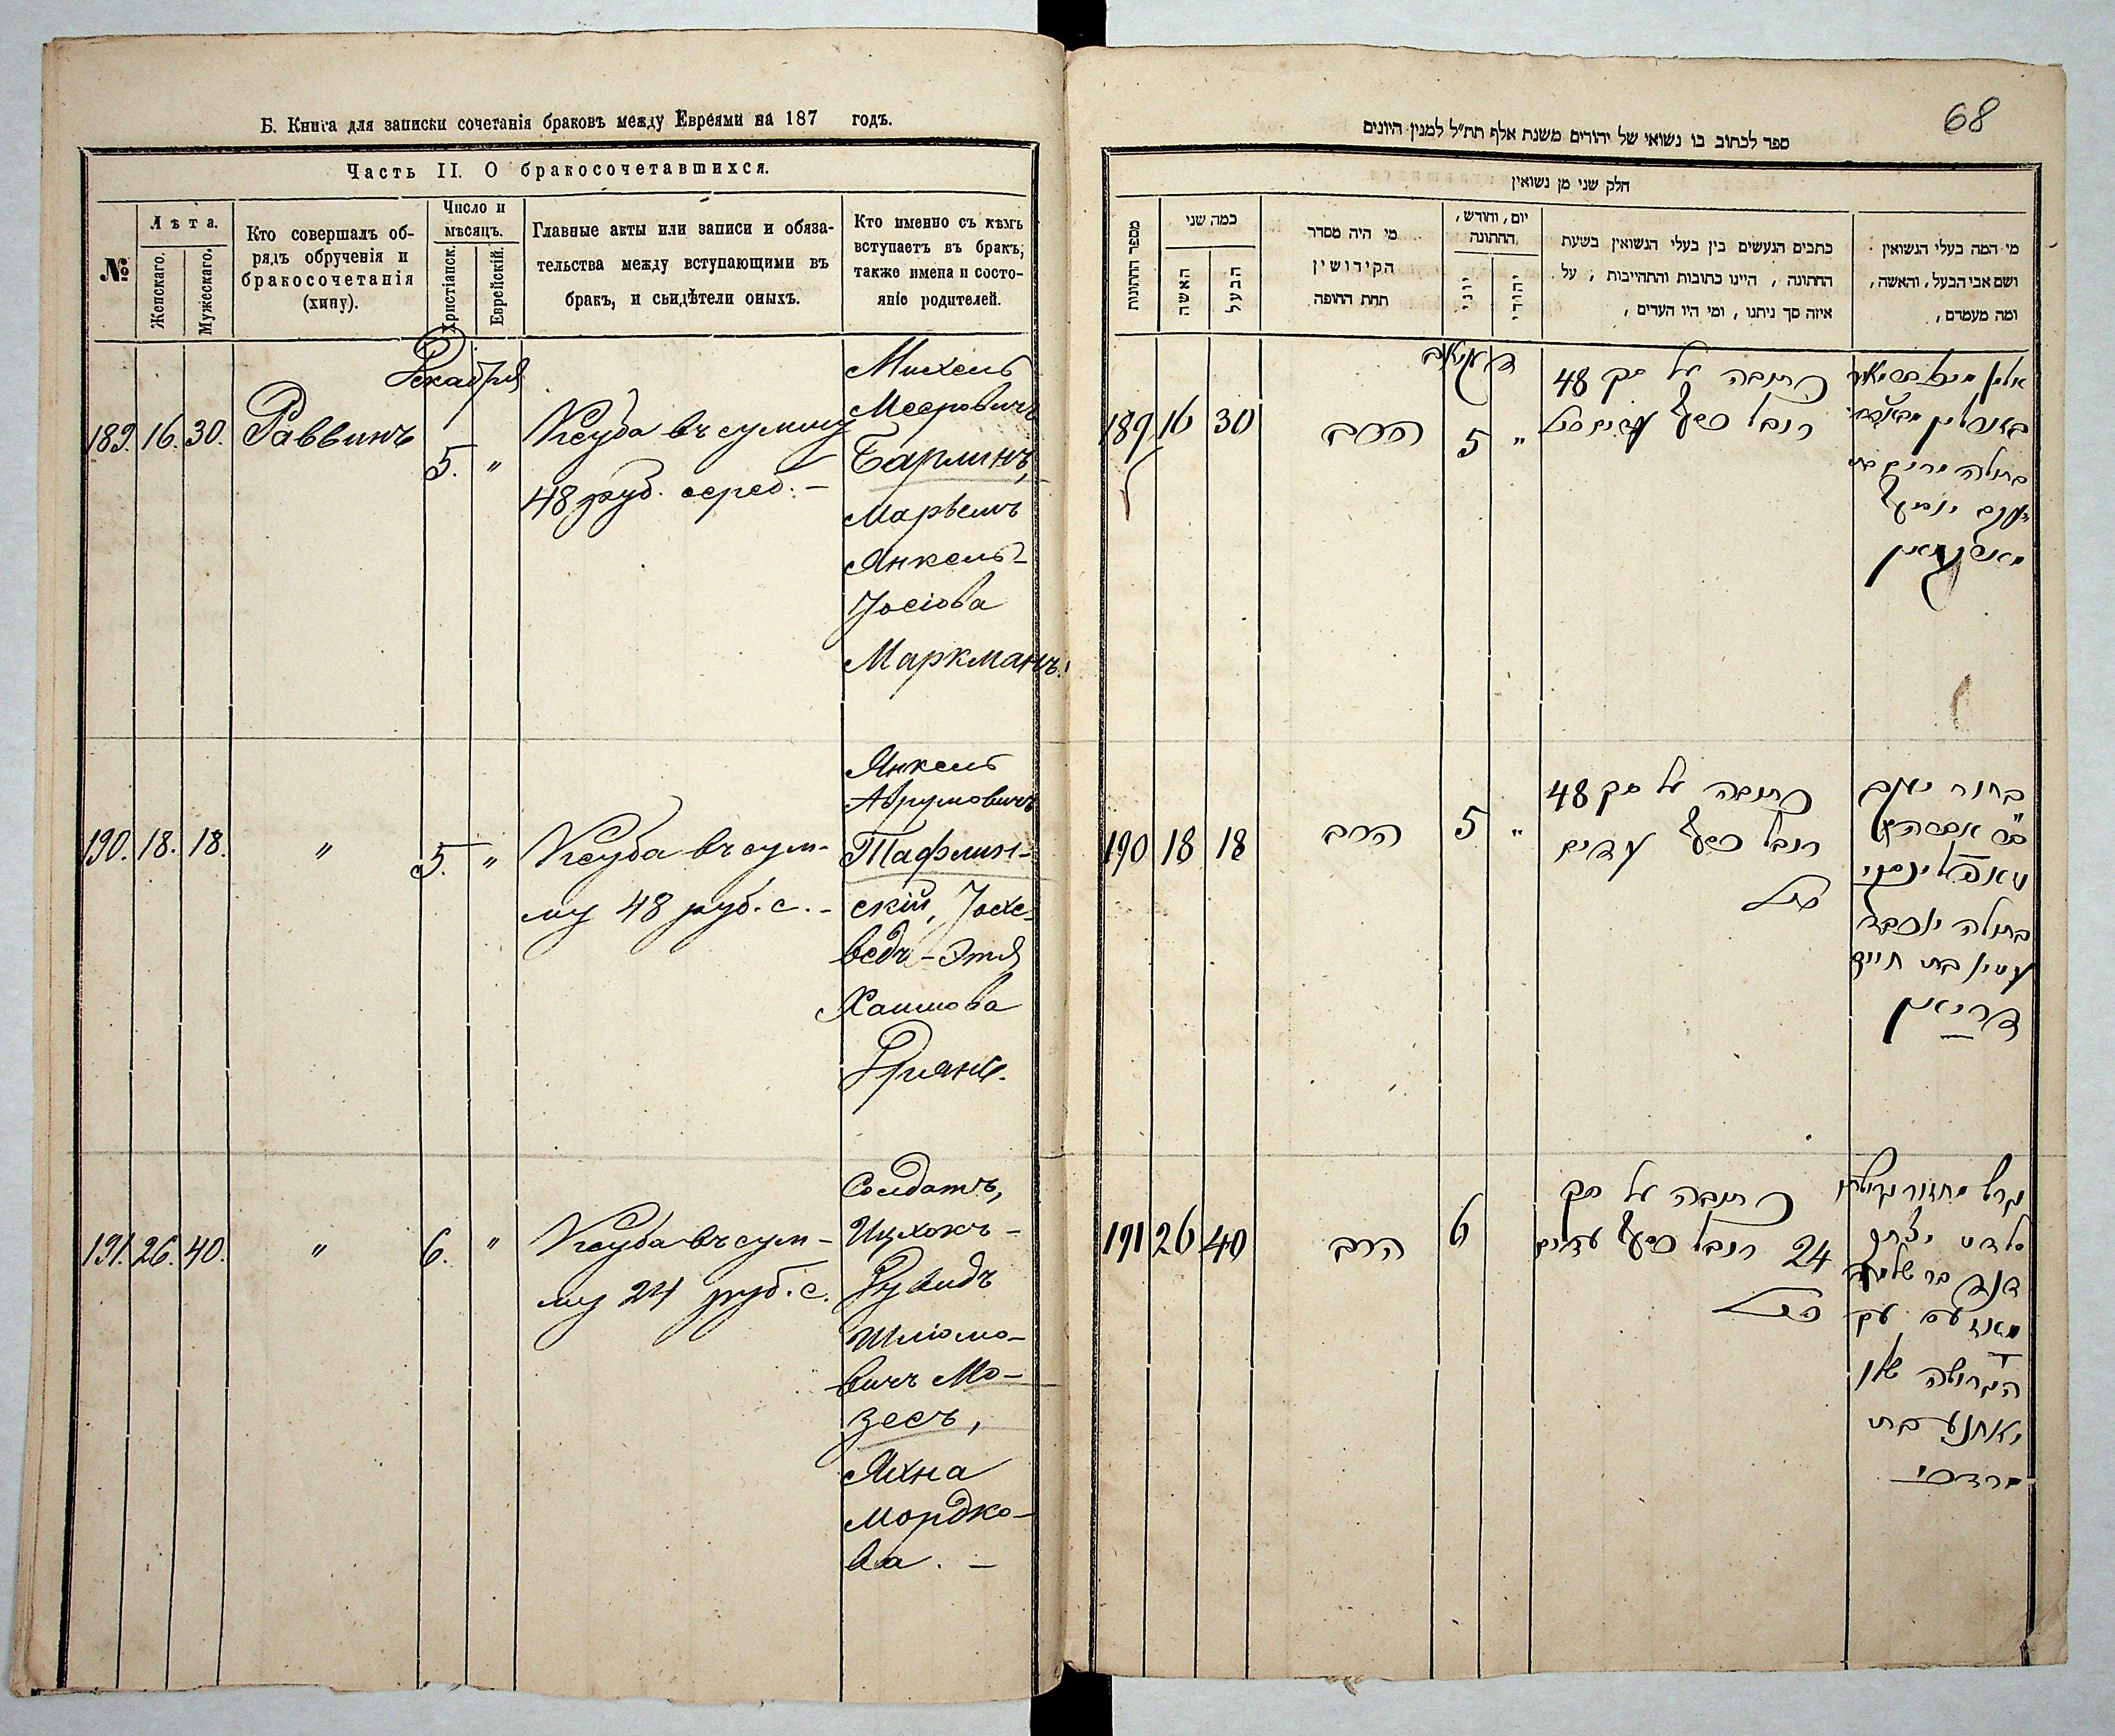 Б. Книга для записки сочетанія браковъ между Евреями на 187 годъ.
Часть II. О бракосочетавшихся.
№
Лѣта.
Женскаго.
Мужескаго.
Кто совершалъ об-
рядъ обрученія и
бракосочетанія
(хипу).
Число и
мѣсяцъ.
Христіанск.
Еврейскій.
Главные акты или записи и обяза-
тельства между вступающими въ
бракъ, и свидѣтели оныхъ.
Кто именно съ кѣмъ
вступаетъ въ бракъ,
также имена и состо-
яніе родителей.
Декабря
189. 16. 30. Раввинъ
5. "
Ксуба въ сумму
48 руб. сереб. –
Михель
Мееровичъ
Барлинъ,
Марьемъ
Янкель-
Іосіова
Маркманъ.
190. 18. 18. "
5. "
Ксуба въ сум-
му 48 руб. с. -
Янкель
Аврумовичъ
Тафлин-
скій, Іохе-
ведъ - Этя
Хаимова
Дріянъ.
191. 26. 40. "
6. "
Ксуба въ сум-
му 24 руб. с.
Солдатъ,
Ицхокъ-
Дувидъ
Шліомо-
вичъ Мо-
зесъ,
Яхна
Мордко-
ва. –
68
ספר לכתוב בו נשואי של יהודים משנת אלף תת"ל למנין היונים
חלק שני מן נשואין
מספר החתונות
כמה שני
האשה
הבעל
מי היה מסדר
הקידושין
תחת החופה
יום, וחודש,
החתונה
יוני
יהודי
כתבים הנעשים בין בעלי הנשואין בשעת
החתונה, היינו כתובות והתחייבות, על
איזה סך ניתנו, ומי היו העדים,
מי המה בעלי הנשואין
ושם אבי הבעל, והאשה,
ומה מעמדם,
189 16 30 הרב 5 "
כתובה על סך 48
רובל כסף
190 18 18 הרב 5 "
כתובה על סך 48
רובל כסף עדים
בחור יעקב
טאפלינסקי
בתולה יוכבד
עטיא בת חיים
דריאן
191 26 40 הרב 6
כתובה על סך
24 רובל כסף עדים
יאחנע בת
מרדכי